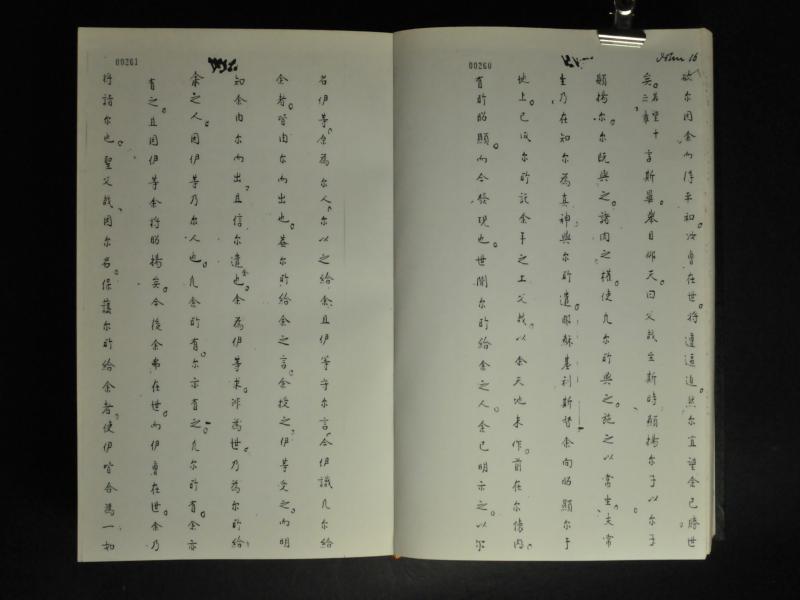 John 16
00260
欲尔因余而得平和。汝曹在世。将遭逼迫。然尔宜望。余已勝世
矣。
言斯畢。舉目仰天。曰父我至斯時顯揚尔子以尔子
顯揚尔。尔既與之諸肉之權。使凡尔所與之。施之以常生。夫常
生乃在知尔為真神。與尔所遣耶穌基利斯督。余向昭顯尔于
地上。已成尔所託余手之工。父我。以余天地未作前在尔懷內。
有所昭顯。而今發現也。世間尔所給余之人。余已明示之。以尔
00261
名伊等。余為尔人。尔以之給余。且伊等守尔言。今伊識凡尔給
余者。皆由尔而出也。盖尔所給余之言。余授之。伊等受之。而明
知余由尔而出。且信尔遣余也。余為伊等求。非為世。乃為尔所給
余之人。因伊等乃尔人也。凡余所有。尔亦有之。凡尔所有。余亦
有之。且因伊等余将昭揚矣。今後余弗在世。而伊曹在世。余乃
将詣尔也。聖父我。因尔名。保護尔所給余者。使伊皆合為一如